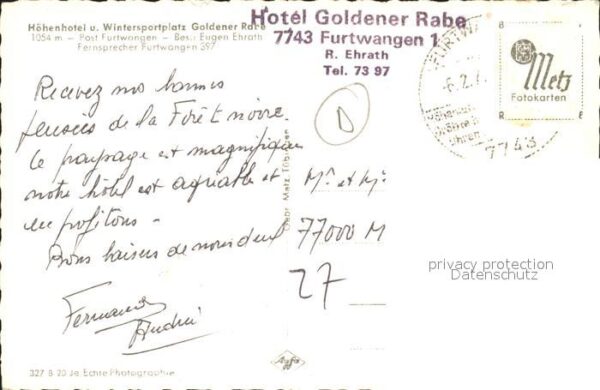 Höhenhotel u. Wintersportplatz Goldener Rabe
1054 m – Post Furtwangen – Bes.: Eugen Ehrath
Fernsprecher Furtwangen 397
Hotel Goldener Rabe
7743 Furtwangen 1
R. Ehrath
Tel. 73 97
FURTWA
-6.2.7
7743
Metz
Fotokarten
R E
B R
Recevez nos bonnes
pensées de la Forêt noire.
Le paysage est magnifique
notre hôtel est agréable et
en profitons -
Bons baisers de nous deux
Fernande
André
D
Mr et Me
77000 M
27
Gebr. Metz Tübingen
privacy protection
Datenschutz
327 B 20 Je Echte Photographie
Agfa